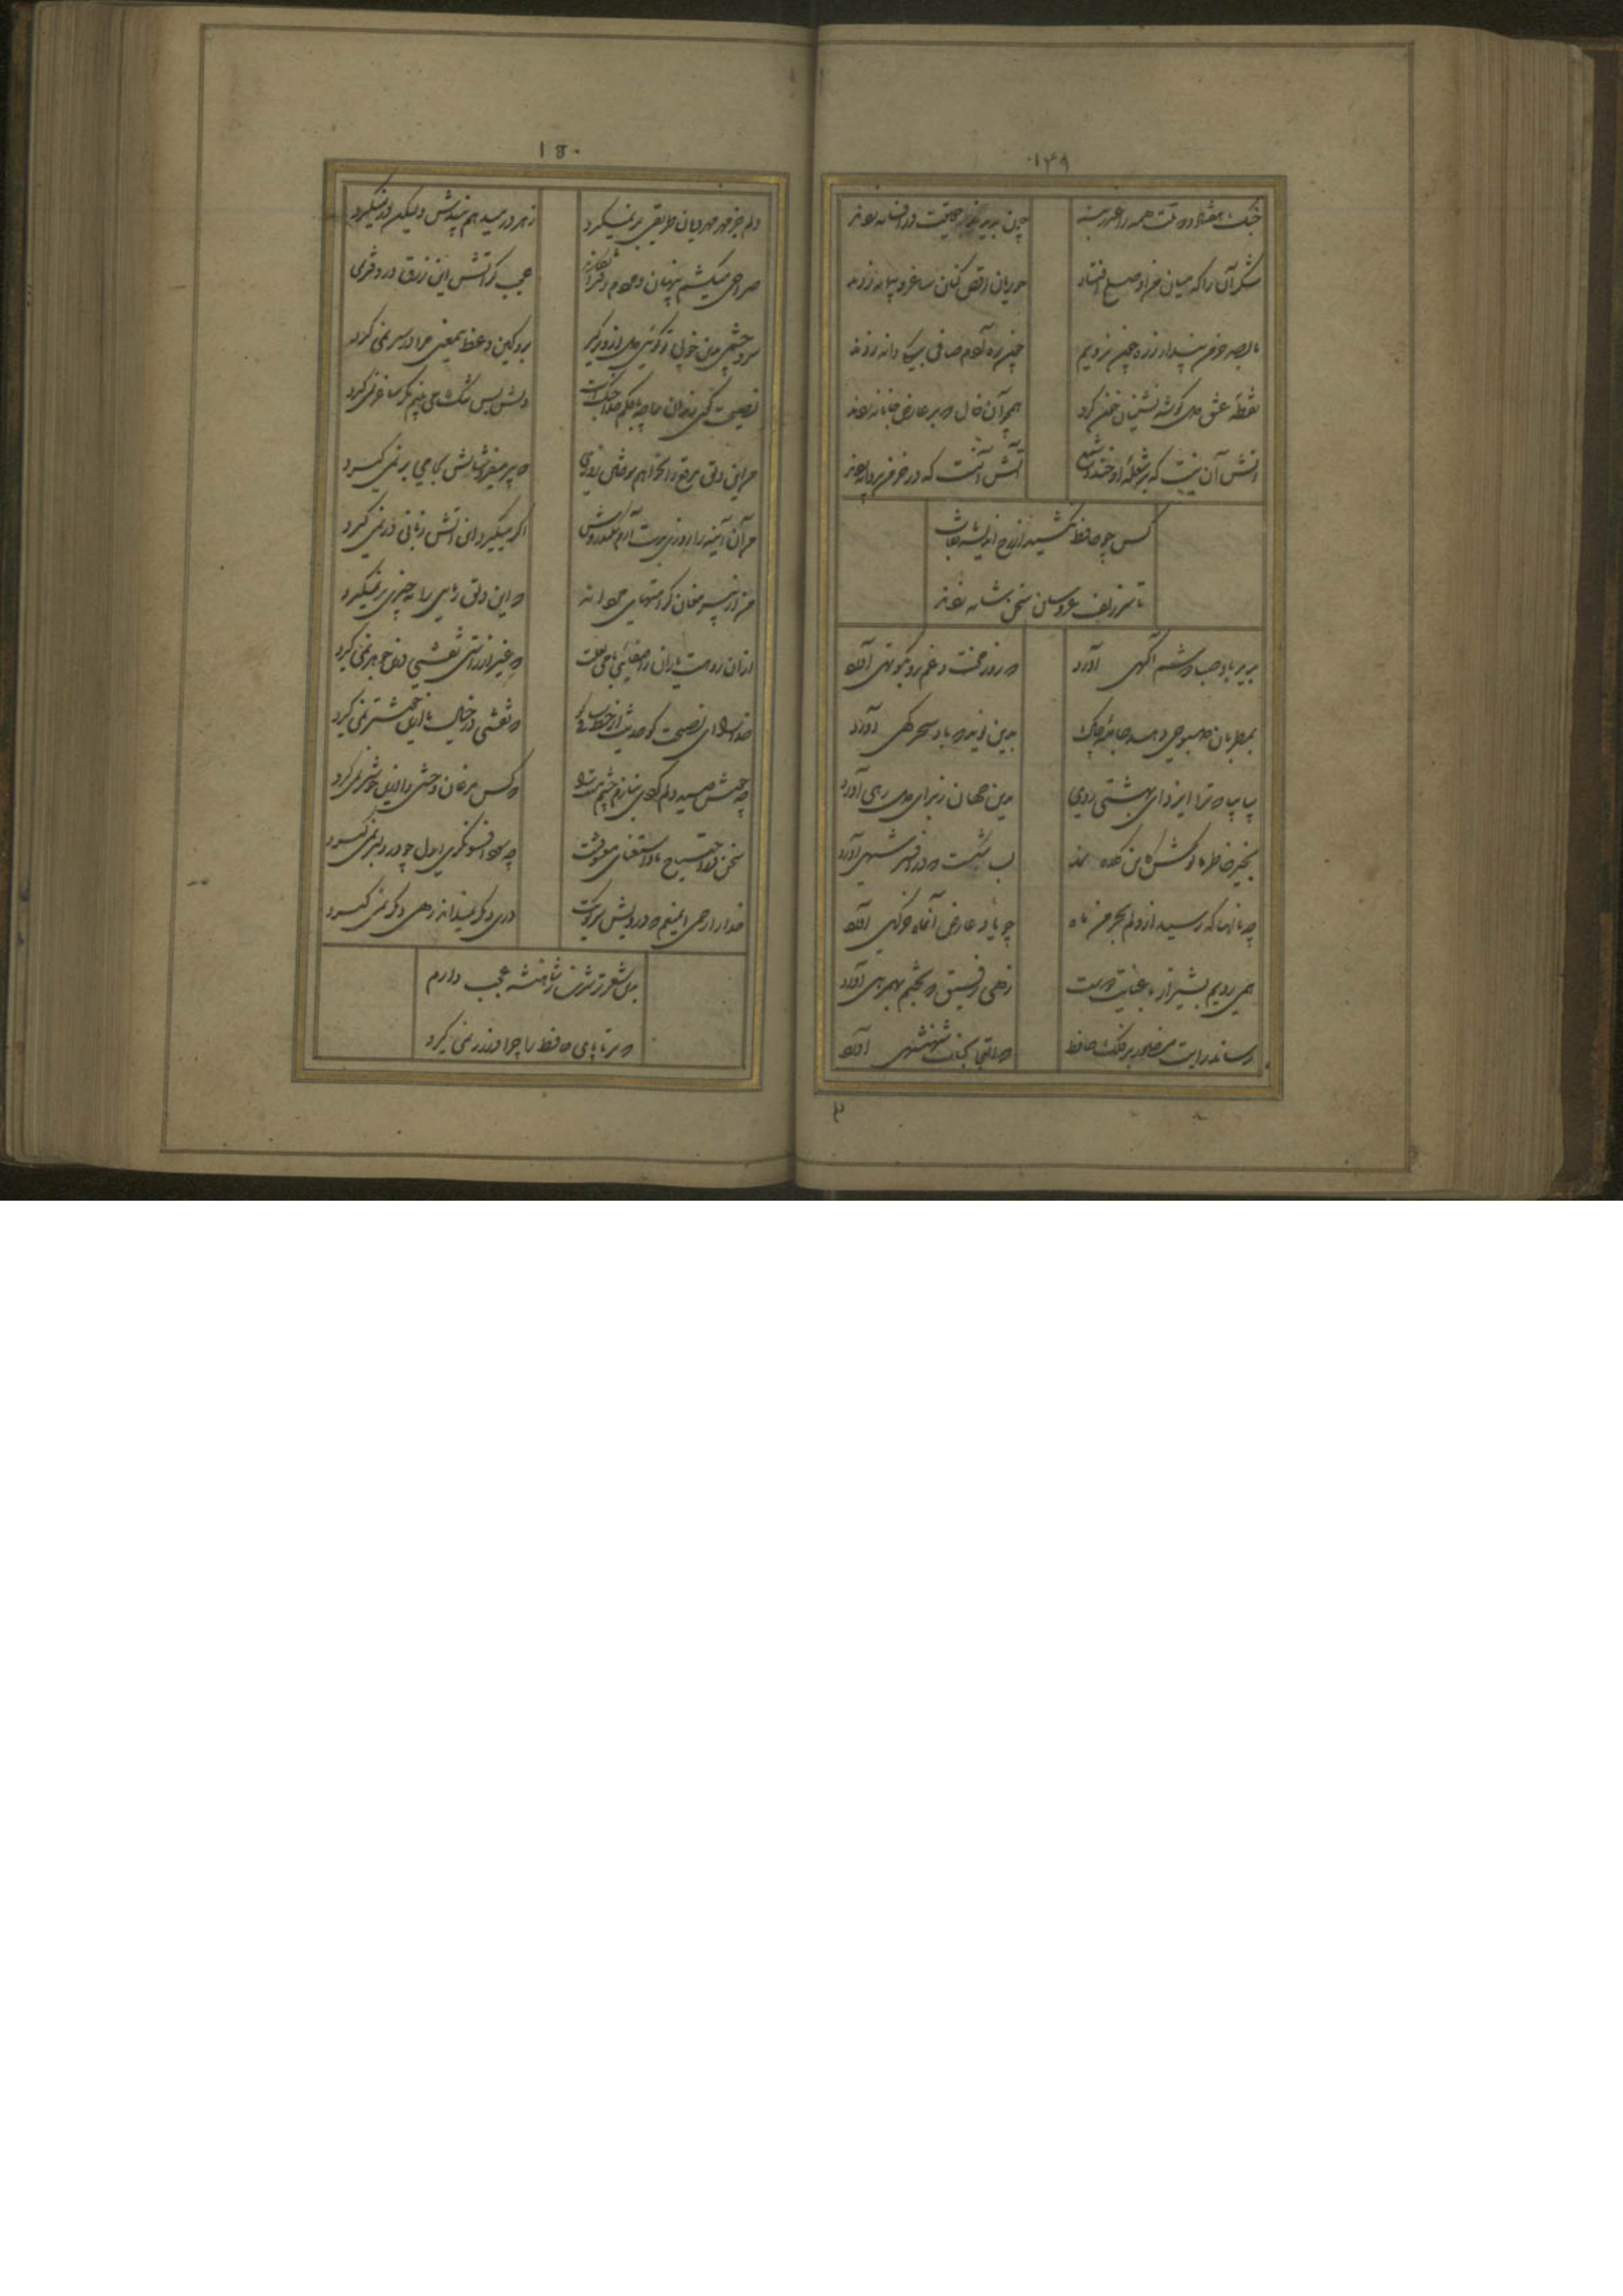 ۱۴۹
جنگ هفتاد و دو ملت همه را عذر بنه
چون ندیدند حقیقت در افسانه زدند
شکر آن را که میان من و او صلح افتاد
حوریان رقص کنان ساغر و پیمانه زدند
ما بصد خرمن پندار ز ره چون نرویم
چون ره آدم صافی بیکی دانه زدند
نقطهٔ عشق دل گوشه نشینان خون کرد
همچو آن خال که بر عارض جانانه زدند
آتش آن نیست که بر شعلهٔ او خندد شمع
آتش آنست که در خرمن پروانه زدند
کس چو حافظ نکشید از رخ اندیشه نقاب
تا سر زلف عروسان سخن شانه زدند
برید باد صبا دوشم آگهی آورد
که روز محنت و غم رو بکوتهی آورد
بمطربان صبوحی دهیم جامهٔ چاک
بدین نوید که باد سحرگهی آورد
بیا بیا که ترا ایزد ای بهشتی روی
درین جهان ز برای دل رهی آورد
بخیر خاطر ما کوش کاین کلاه نمد
بسا شکست که در افسر شهی آورد
چه نالها که رسید از دلم بخرمن ماه
چو یاد عارض آن ماه خرگهی آورد
همی رویم بشیراز با عنایت دوست
زهی رفیق که بختم بهمرهی آورد
رساند رایت منصور بر فلک حافظ
که التجا بجناب شهنشهی آورد
۱۵۰
دلم جز مهر مهرویان طریقی بر نمیگیرد
ز هر در میدهم پندش ولیکن در نمیگیرد
صراحی میکشم پنهان و مردم دفتر انگارند
عجب گر آتش این زرق در دفتر نمی
سر و چشمی بدین خوبی تو گوئی دل ازو برگیر
برو کین وعظ بیمعنی مرا در سر نمی گیرد
نصیحت گوی رندان را که با حکم خدا جنگست
دلش بس تنگ می بینم مگر ساغر نمی گیرد
من این دلق مرقع را بخواهم سوختن روزی
که پیر میفروشانش بجامی بر نمی گیرد
من آن آیینه را روزی بدست آرم سکندروش
اگر میگیرد این آتش زمانی در نمی گیرد
من از پیر مغان کرامتهای
که این دلق ریایی را به چیزی بر نمیگیرد
از آن روهست یاران را صفاییها بامی لعلت
که غیر از راستی نقشی درین جوهر نمی گیرد
خدا را ای نصیحت گو حدیث از خط ساقی گو
که نقشی در خیال ما ازین خوشتر نمی گیرد
چه خوش صید دلم کردی بنازم چشم مستت را
که کس مرغان وحشی را ازین خوشتر نمی گیرد
سخن در احتیاج ما و استغنای معشوقست
چه سود افسونگری ای دل چو در دلبر نمی گیرد
خدا را رحمی ای منعم که درویش سر کویت
دری دیگر نمیداند رهی دیگر نمی گیرد
بدین شعر تر شیرین ز شاهنشه عجب دارم
که سر تا پای حافظ را چرا در زر نمی گیرد